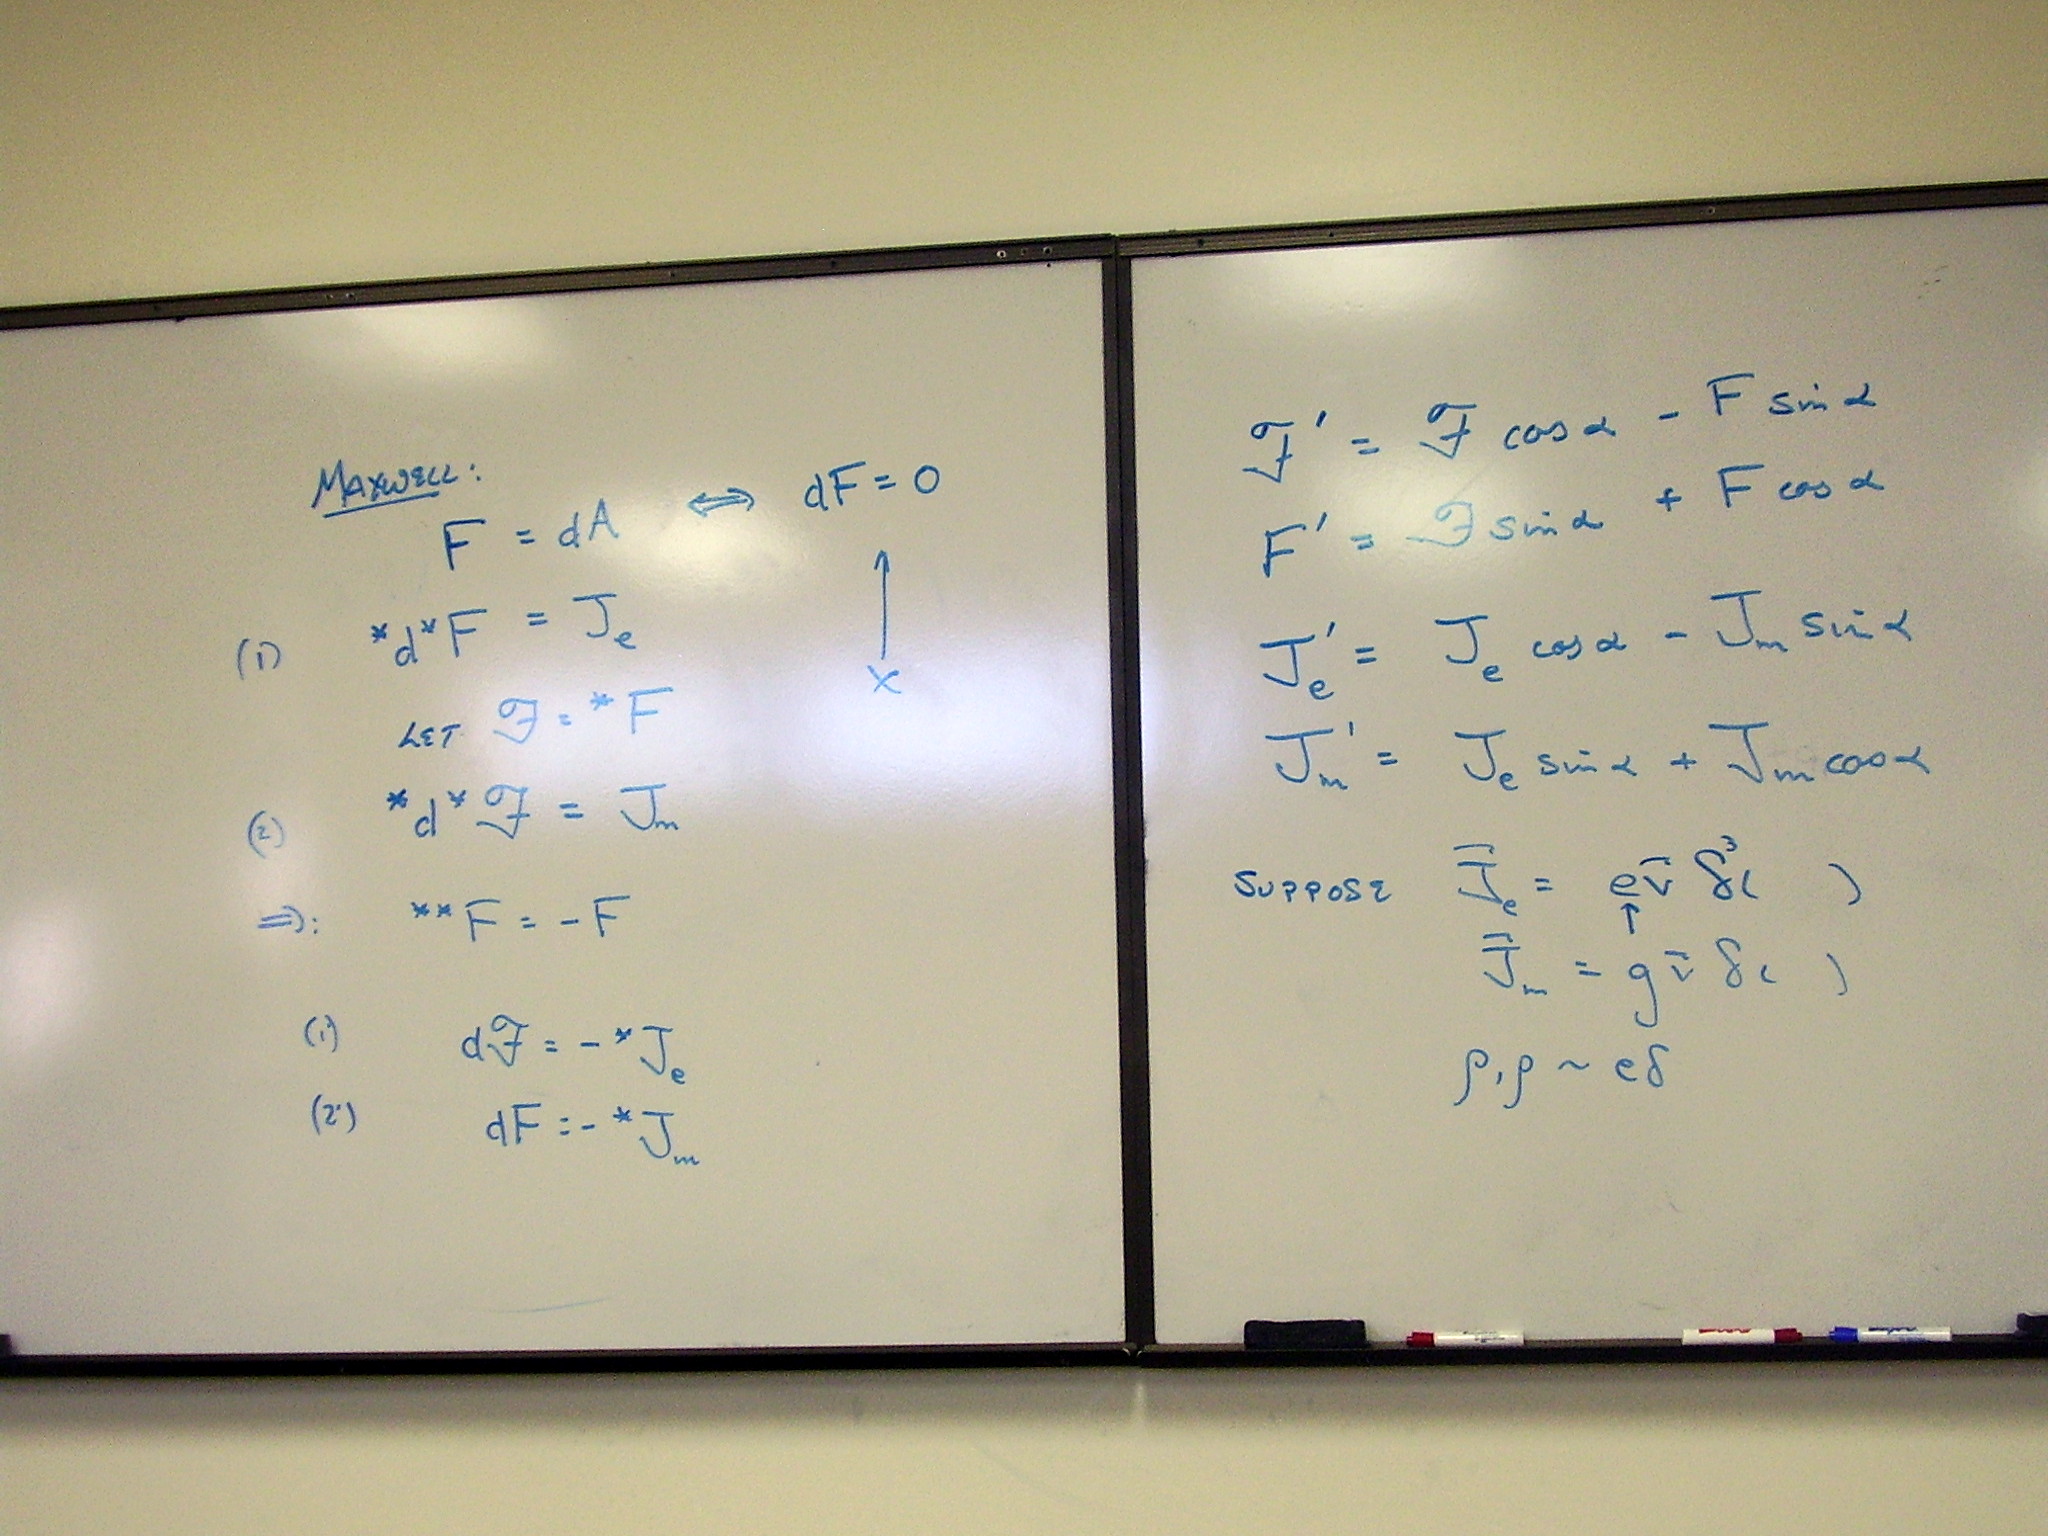 MAXWELL:
F = dA ⟺ dF = 0
(1) *d*F = J_e
x
LET ℱ = *F
(2) *d*ℱ = J_m
⇒: **F = -F
(1) dℱ = - *J_e
(2) dF = - *J_m
ℱ' = ℱ cos α - F sin α
F' = ℱ sin α + F cos α
J_e' = J_e cos α - J_m sin α
J_m' = J_e sin α + J_m cos α
SUPPOSE J⃗_e = e v⃗ δ³( )
J⃗_m = g v⃗ δ( )
ρ, ρ ~ eδ